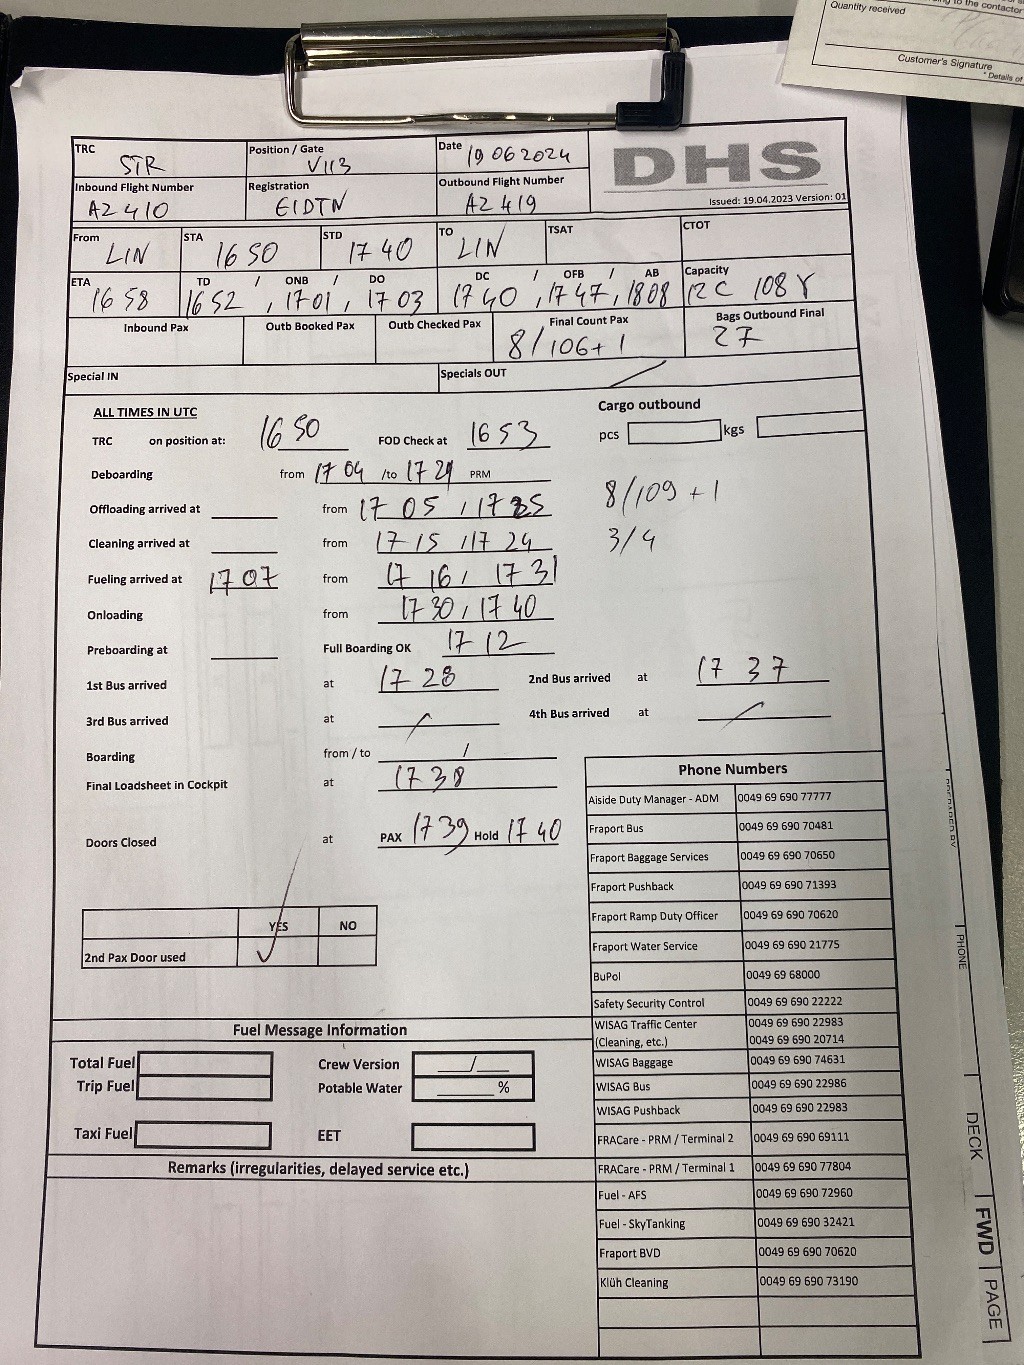 Quantity received
to the contactor
Customer's Signature
* Details of
TRC STR Position / Gate V113 Date 19 06 2024 DHS
Inbound Flight Number AZ 410 Registration EIDTN Outbound Flight Number AZ 419 Issued: 19.04.2023 Version: 01
From LIN STA 16 50 STD 17 40 TO LIN TSAT CTOT
ETA 16 58 TD / ONB / DO 16 52 , 17 01 , 17 03 DC / OFB / AB 17 40 , 17 47 , 1808 Capacity 12C 108Y
Inbound Pax Outb Booked Pax Outb Checked Pax Final Count Pax 8/106+1 Bags Outbound Final 27
Special IN Specials OUT /
ALL TIMES IN UTC Cargo outbound
TRC on position at: 16 50 FOD Check at 16 53 pcs kgs
Deboarding from 17 04 /to PRM
8/109 + 1
Offloading arrived at from 17 05 /
3/4
Cleaning arrived at from 17 15 / 17 24
Fueling arrived at 17 07 from 17 16 / 17 31
Onloading from 17 30 / 17 40
Preboarding at Full Boarding OK 17 12
1st Bus arrived at 17 28 2nd Bus arrived at 17 37
3rd Bus arrived at / 4th Bus arrived at /
Boarding from / to /
Final Loadsheet in Cockpit at 17 38
Doors Closed at PAX 17 39 Hold 17 40
YES NO
2nd Pax Door used ✓
Fuel Message Information
Total Fuel Crew Version /
Trip Fuel Potable Water %
Taxi Fuel EET
Remarks (irregularities, delayed service etc.)
Phone Numbers
Aiside Duty Manager - ADM 0049 69 690 77777
Fraport Bus 0049 69 690 70481
Fraport Baggage Services 0049 69 690 70650
Fraport Pushback 0049 69 690 71393
Fraport Ramp Duty Officer 0049 69 690 70620
Fraport Water Service 0049 69 690 21775
BuPol 0049 69 68000
Safety Security Control 0049 69 690 22222
WISAG Traffic Center 0049 69 690 22983
(Cleaning, etc.) 0049 69 690 20714
WISAG Baggage 0049 69 690 74631
WISAG Bus 0049 69 690 22986
WISAG Pushback 0049 69 690 22983
FRACare - PRM / Terminal 2 0049 69 690 69111
FRACare - PRM / Terminal 1 0049 69 690 77804
Fuel - AFS 0049 69 690 72960
Fuel - SkyTanking 0049 69 690 32421
Fraport BVD 0049 69 690 70620
Klüh Cleaning 0049 69 690 73190
PHONE
DECK
FWD
PAGE